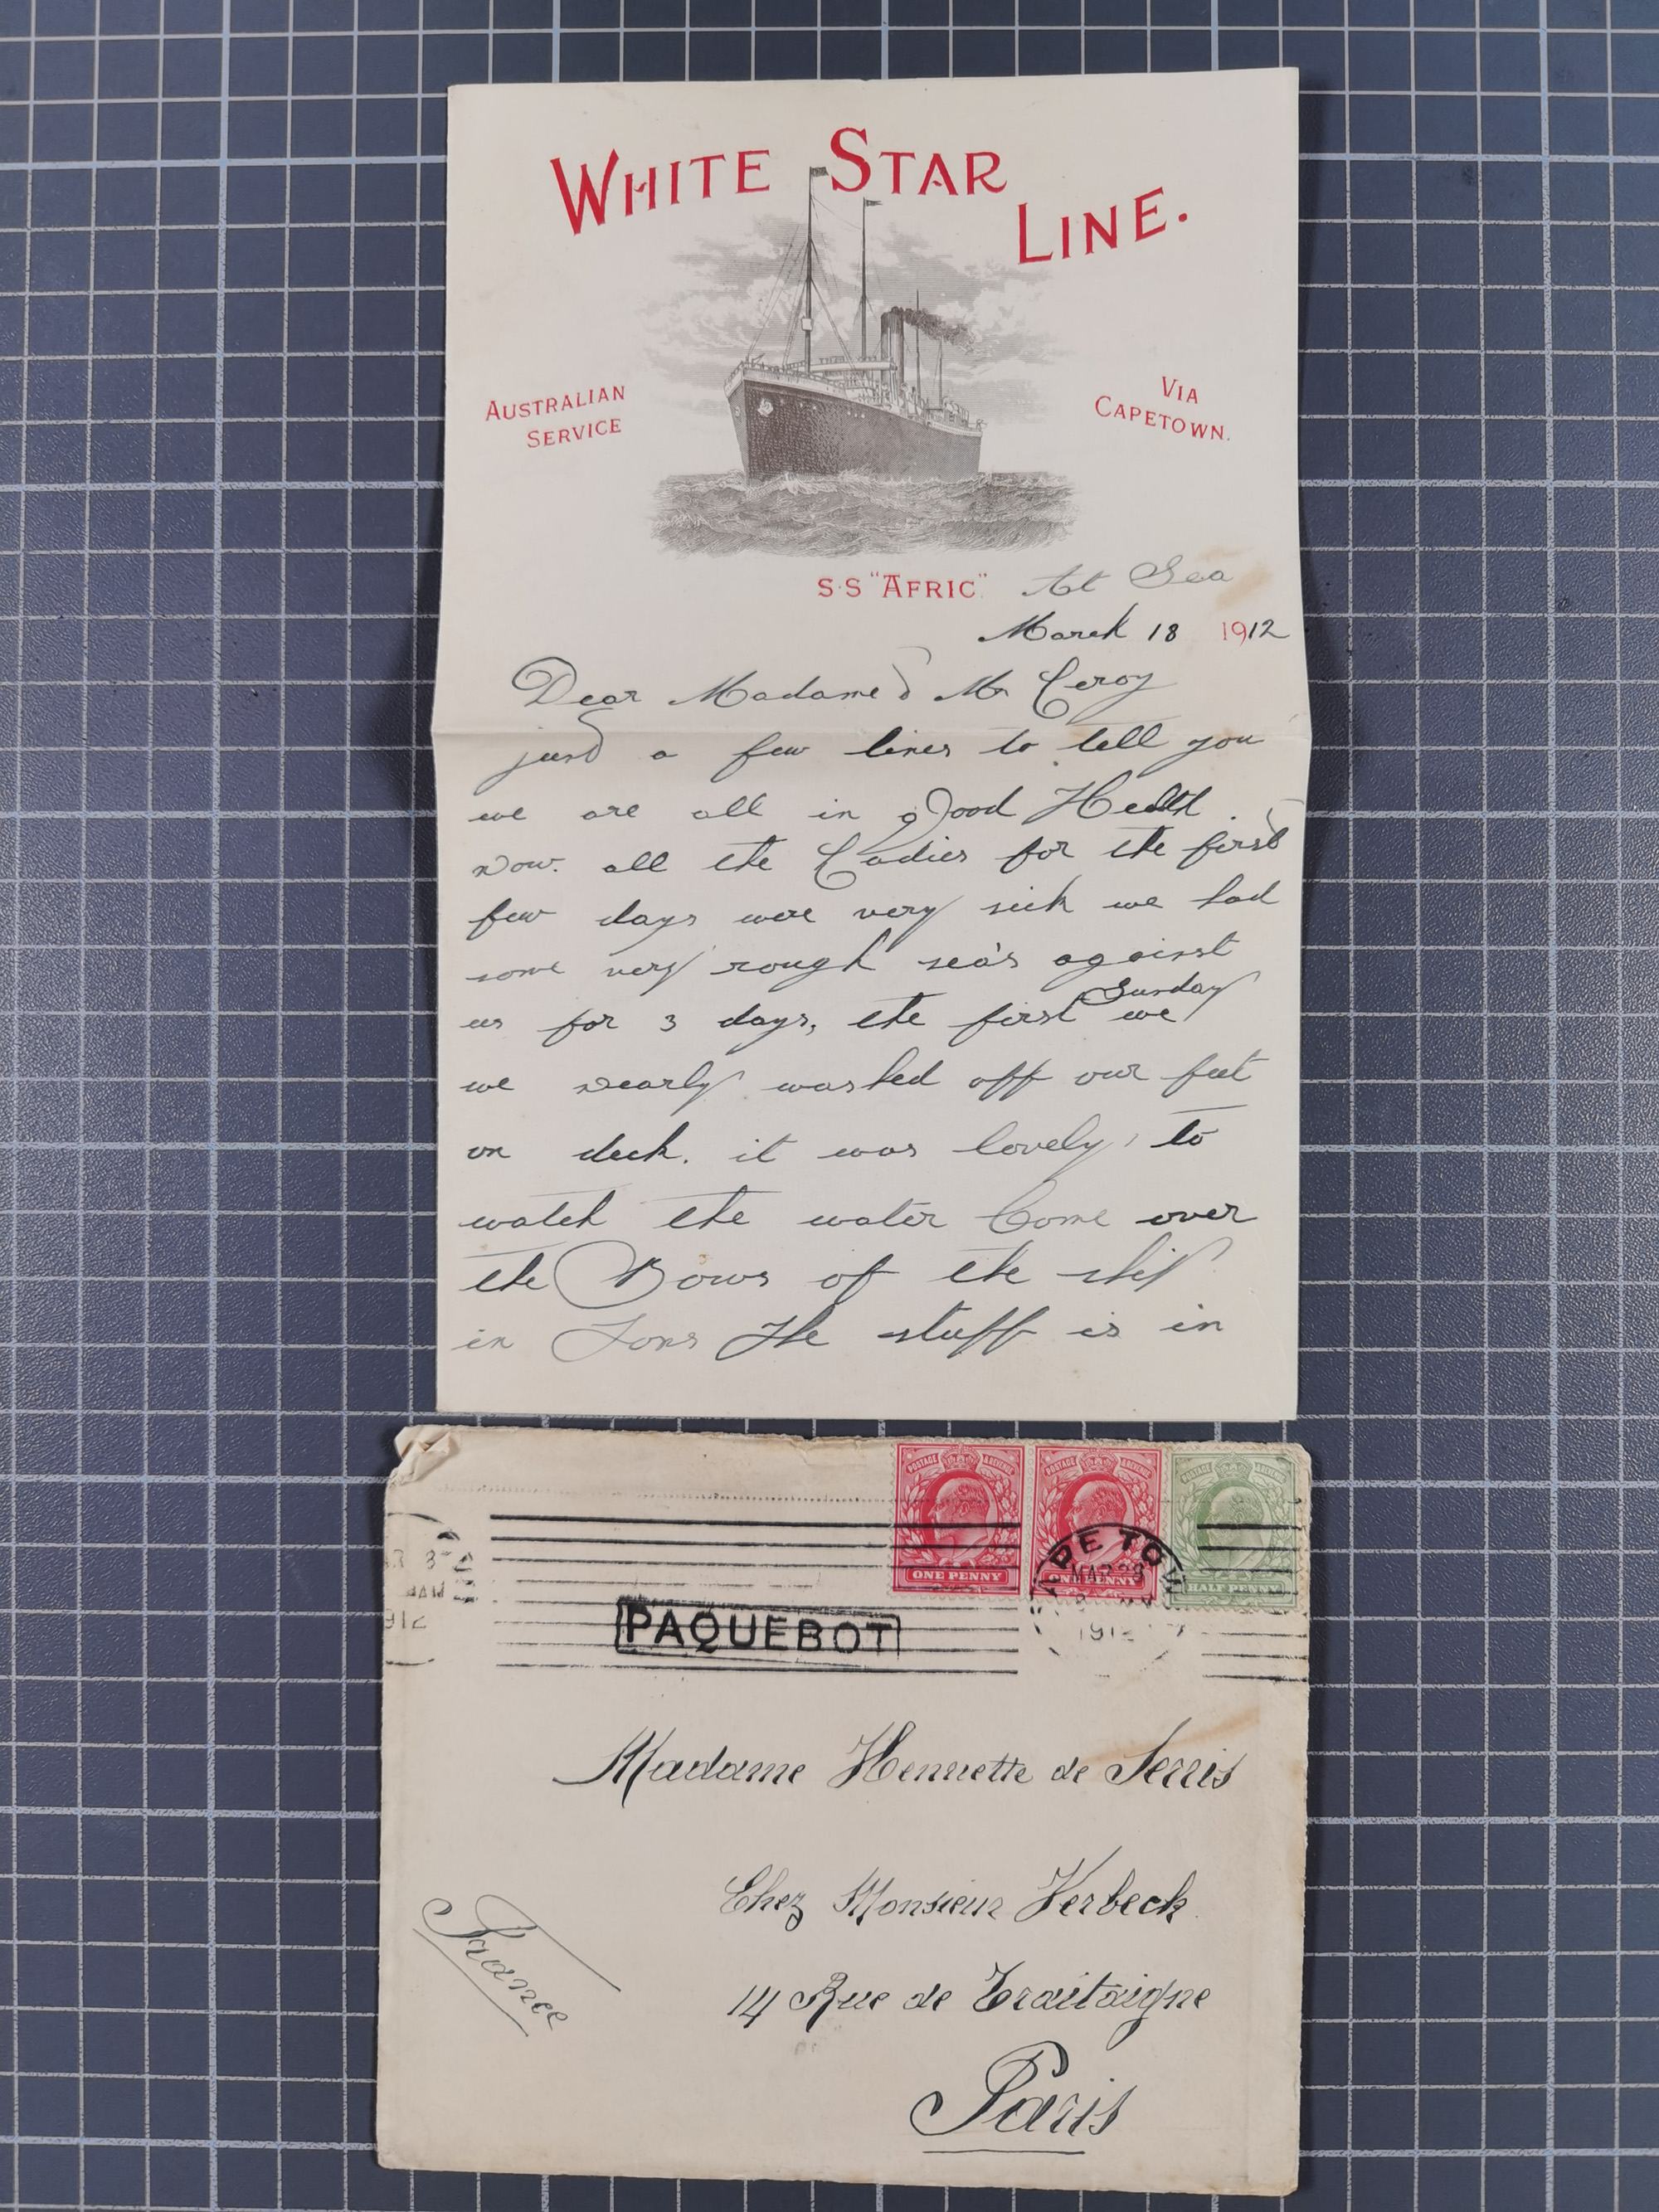 WHITE STAR LINE.
AUSTRALIAN SERVICE
VIA CAPETOWN.
S.S "AFRIC". At Sea
March 18 1912
Dear Madame & Mr Leroy
just a few lines to tell you
we are all in good Health.
Now. all the Ladies for the first
few days were very sick we had
some very rough sea's against
us for 3 days, the first Sunday we
we nearly washed off our feet
on deck. it was lovely, to
watch the water Come over
the Bows of the ship
in Tons The stuff is in
POSTAGE & REVENUE
ONE PENNY
POSTAGE & REVENUE
ONE PENNY
POSTAGE & REVENUE
HALF PENNY
1912
PAQUEBOT
Madame Henriette de Serris
Chez Monsieur Verbeck
14 Rue de Traitaigne
Paris
France